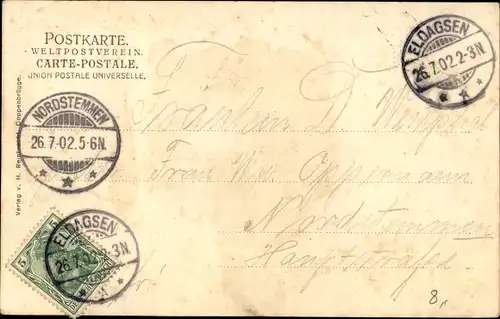 POSTKARTE.
WELTPOSTVEREIN.
CARTE-POSTALE.
UNION POSTALE UNIVERSELLE.
ELDAGSEN
26.7.02.2-3N.
NORDSTEMMEN
26.7.02.5-6N.
Verlag v. H.
Coppenbrügge.
Fräulein D.
Frau Wwe Oppermann
Nordstemmen
Hauptstraße
ELDAGSEN
26.7.02.2-3N.
5
8,